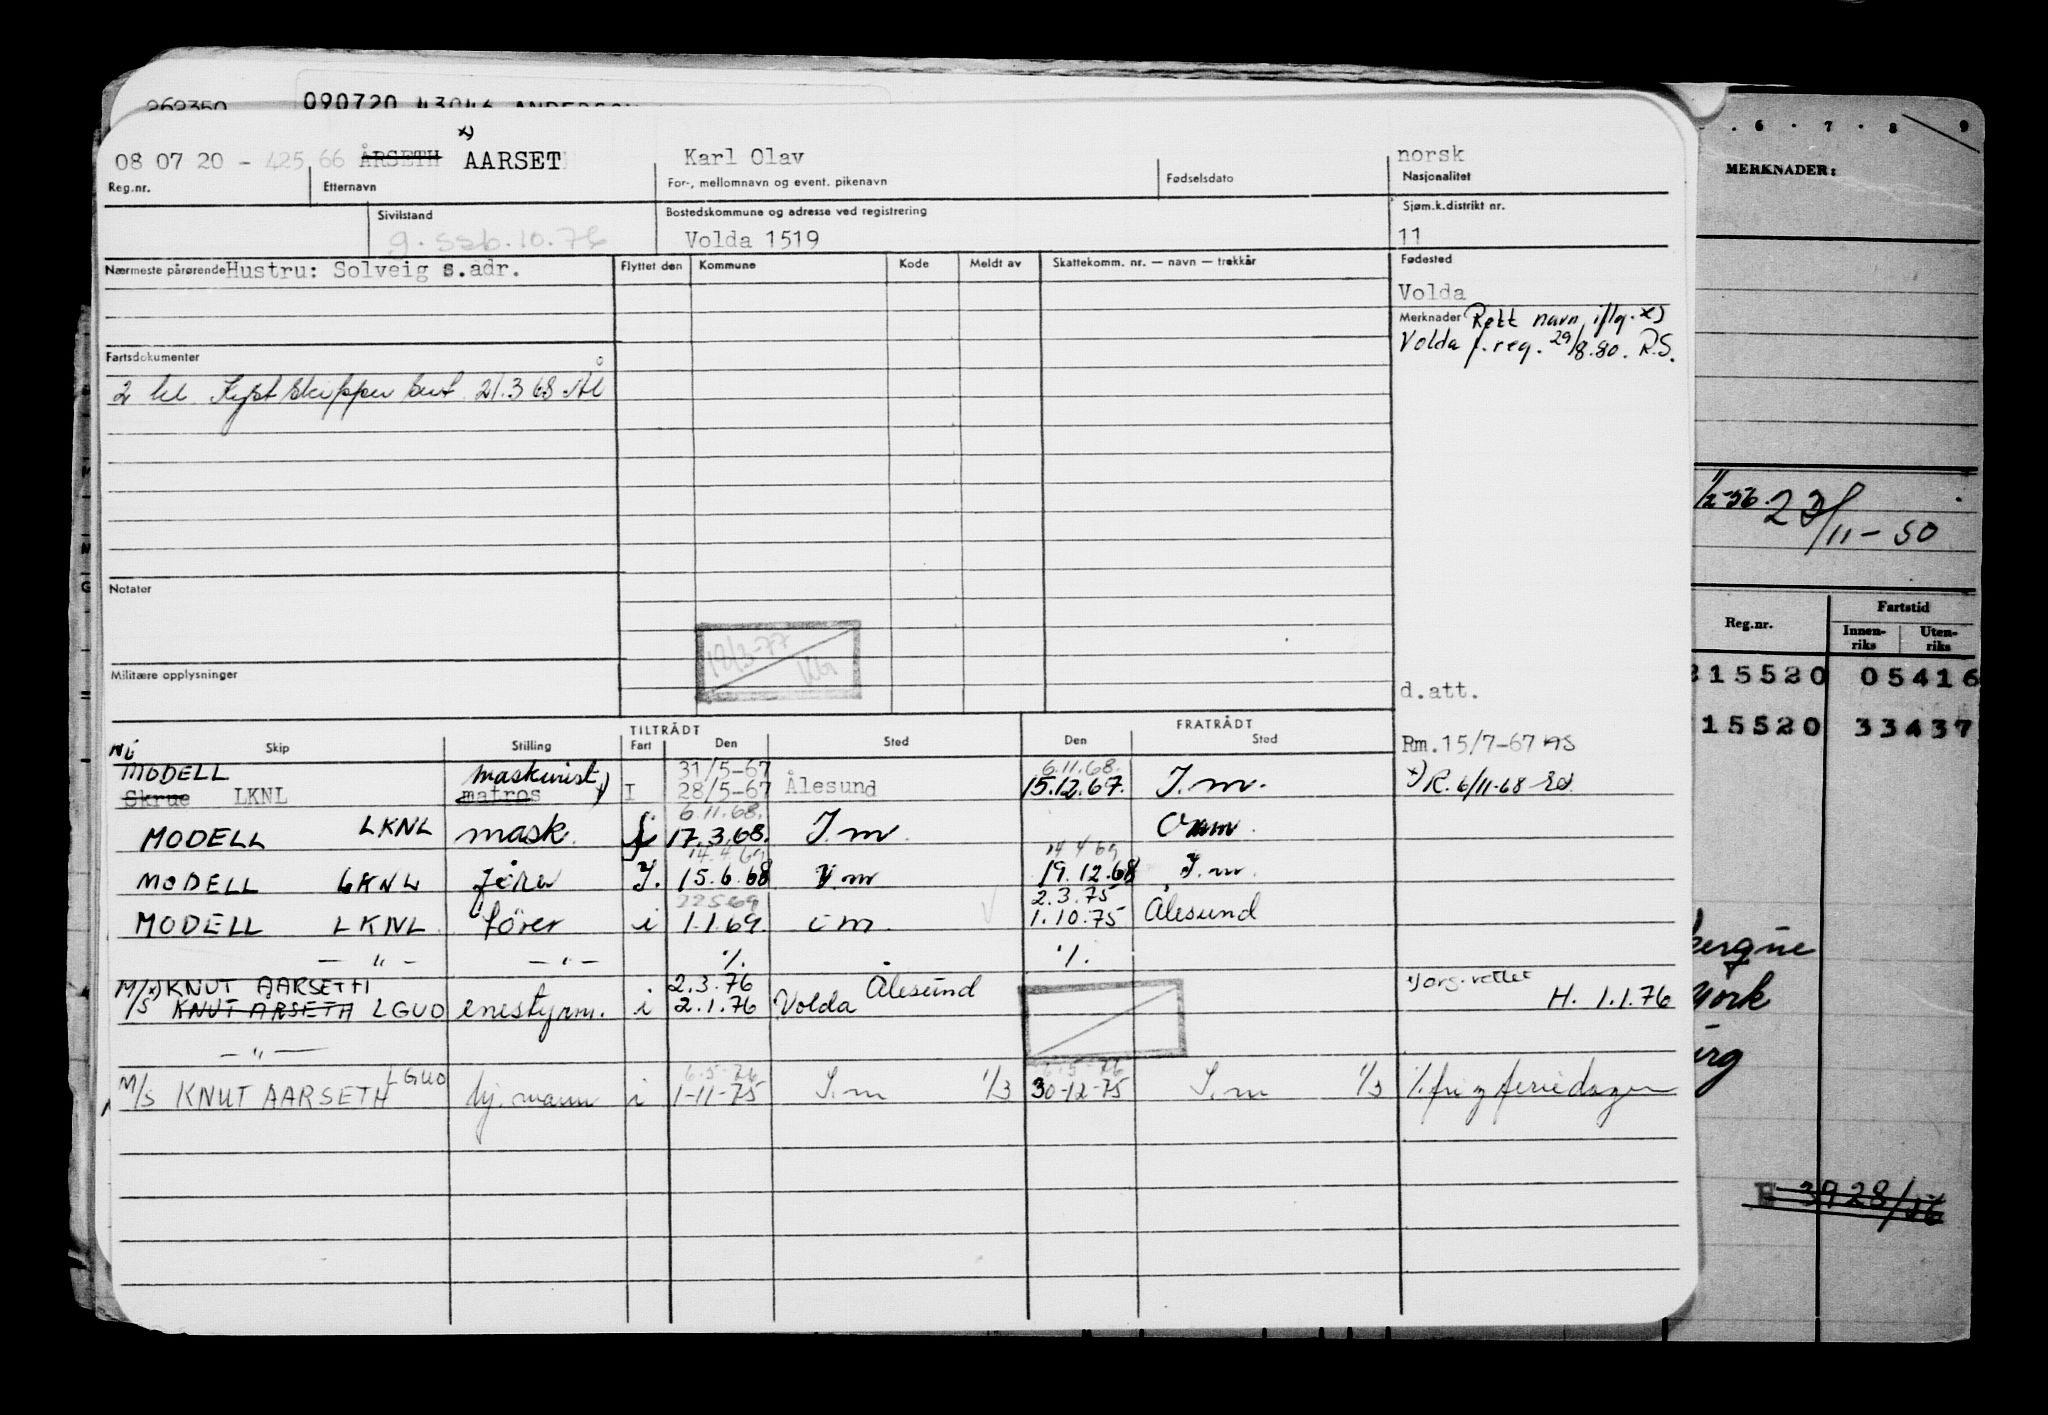 090720 43046
x)
08 07 20 - 42566 ÅRSETH AARSET Karl Olav norsk
Reg.nr. Etternavn For-, mellomnavn og event. pikenavn Fødselsdato Nasjonalitet
Sivilstand Bostedskommune og adresse ved registrering Sjøm.k.distrikt nr.
Volda 1519 11
Nærmeste pårørende Hustru: Solveig s.adr. Flyttet den Kommune Kode Meldt av Skattekomm. nr. — navn — trekkår Fødested
Volda
Merknader Rett navn iflg. x)
Volda f.reg. 29/8.80. R.S.
Fartsdokumenter
2 kl. Kystskipper 21.3 68
Notater
12/3-77
Militære opplysninger
d.att.
TILTRÅDT FRATRÅDT
Skip Stilling Fart Den Sted Den Sted
Rm.15/7-67 AS
MODELL maskinist x) 31/5-67 6.11.68.
Skrue LKNL matros I 28/5-67 Ålesund 15.12.67. I.m. x) R. 6/11-68
6.11.68.
MODELL LKNL mask. i 17.3.68. I.m.
14.4.69 14 4 69
MODELL LKNL fører I. 15.6.68 I.m 19.12.68 I.m.
22569 2.3.75
MODELL LKNL fører i 1.1.69. i m. 1.10.75 Ålesund
— " — — " — ·/. ·/.
M/S x) KNUT AARSETH 2.3.76 Ålesund
KNUT ÅRSETH LGUO enestyrm. i 2.1.76 Volda H. 1.1.76
— " —
LGUO 6.5-76 6.5-76
M/S KNUT AARSETH i 1-11-75 I.m 1/3 30-12-75 I.m 1/3
6 · 7 · 8 9
MERKNADER:
1/2-56. 23/11-50
Reg.nr. Fartstid
Innen-riks Uten-riks
315520 05416
15520 33437
3928/56